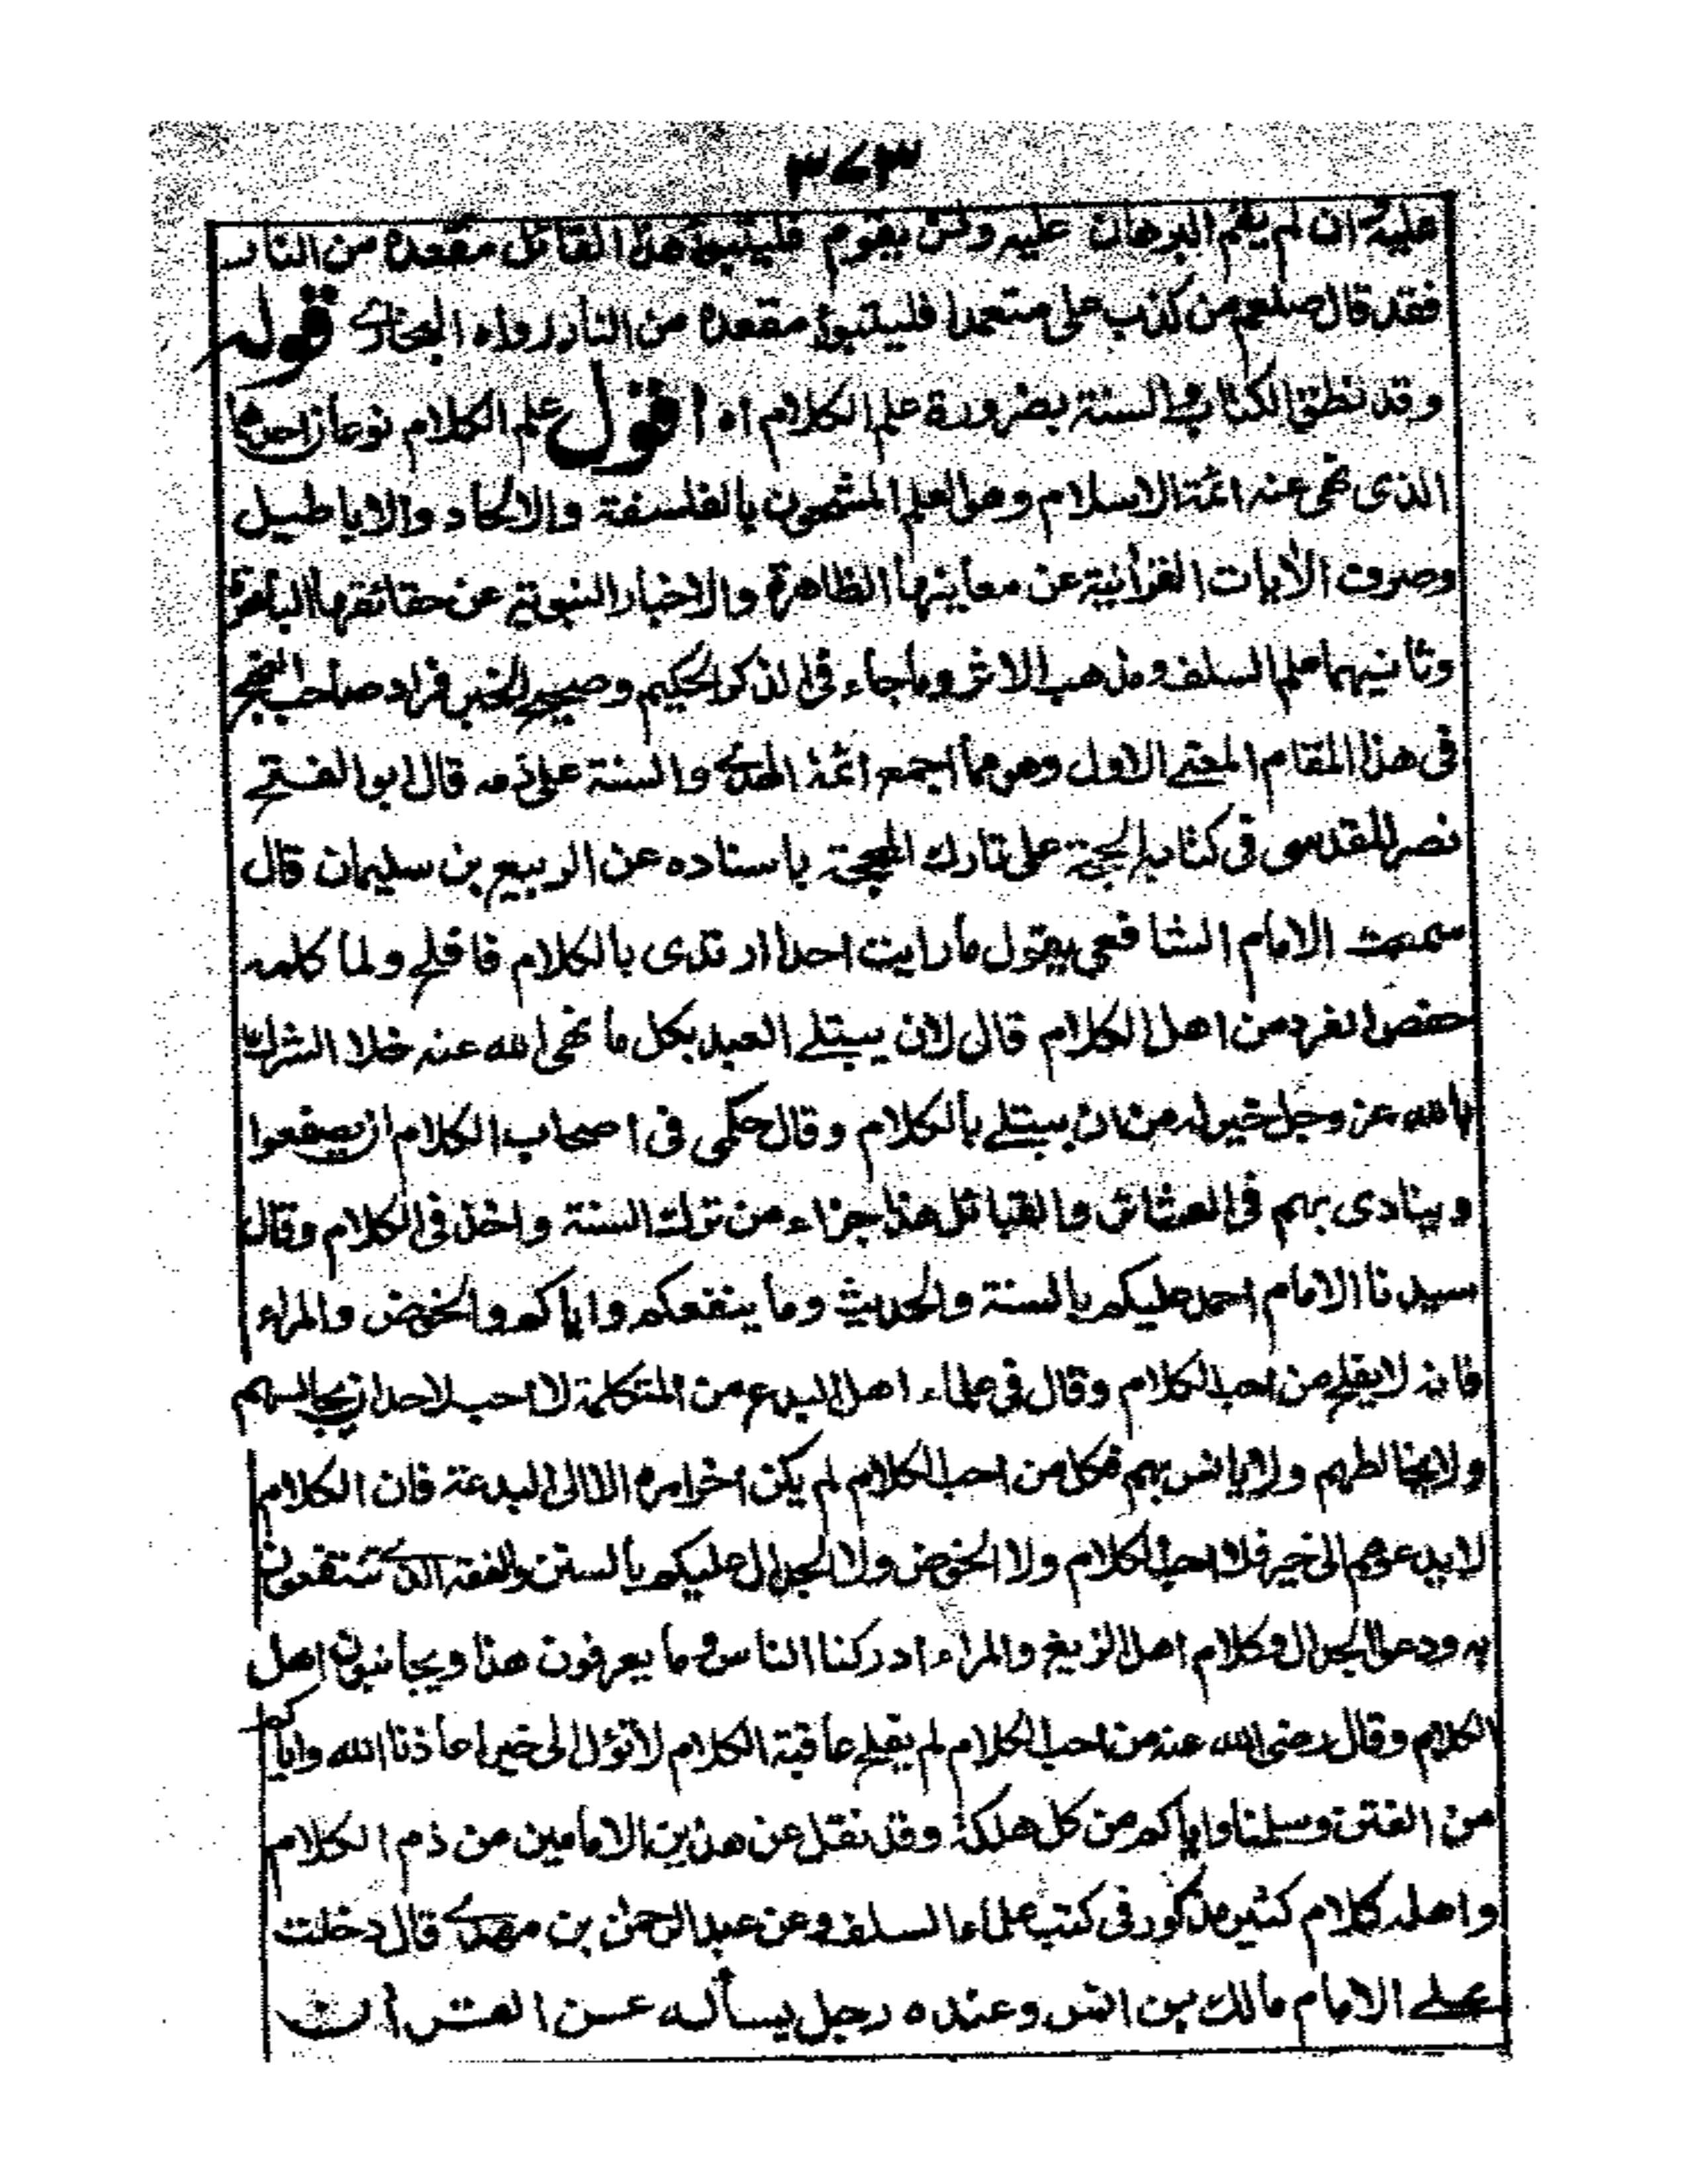 ٣٧٣
عليه ان لم يقم البرهان عليه ولن يقوم فليتبوأ هذا القائل مقعده من النار
فقد قال صلعم من كذب على متعمدا فليتبوأ مقعده من النار رواه البخارى قوله
وقد نطق الكتاب والسنة بضرورة علم الكلام اه اقول علم الكلام نوعان احدهما
الذى نهى عنه ائمة الاسلام وهو العلم المشحون بالفلسفة والالحاد والاباطيل
وصرف الأيات القرأنية عن معاينها الظاهرة والاخبار النبوية عن حقائقها الباهرة
وثانيهما علم السلف ومذهب الاثر وما جاء فى الذكر الحكيم وصحيح الخبر فمراد صاحب النهج
فى هذا المقام المعنى الاول وهو مما اجمع ائمة الهدى والسنة على ذمه قال ابو الفتح
نصر المقدسى فى كتابه الحجة على تارك المحجة باسناده عن الربيع بن سليمان قال
سمعت الامام الشافعى يقول ما رايت احدا ارتدى بالكلام فافلح ولما كلمه
حفص الفرد من اهل الكلام قال لان يبتلى العبد بكل ما نهى الله عنه خلا الشرك
بالله عز وجل خير له من ان يبتلى بالكلام وقال حكمى فى اصحاب الكلام ان يصفعوا
وينادى بهم فى العشائر والقبائل هذا جزاء من ترك السنة واخذ فى الكلام وقال
سيدنا الامام احمد عليكم بالسنة والحديث وما ينفعكم واياكم والخوض والمراء
فانه لا يفلح من احب الكلام وقال فى علماء اهل البدع من المتكلمة لا احب لاحد ان يجالسهم
ولا يخالطهم ولا يانس بهم فكل من احب الكلام لم يكن اخر امره الا الى البدعة فان الكلام
لا يدعوهم الى خير فلا احب الكلام ولا الخوض ولا الجدال عليكم بالسنن والفقه الذى تنتفعون
به ودعوا الجدال وكلام اهل الزيغ والمراء ادركنا الناس وما يعرفون هذا ويجانبون اهل
الكلام وقال رضى الله عنه من احب الكلام لم يفلح عاقبة الكلام لا تؤل الى خير اعاذنا الله واياكم
من الفتن وسلمنا واياكم من كل هلكة وقد نقل عن هذين الامامين من ذم الكلام
واهله كلام كثير مذكور فى كتب علماء السلف وعن عبد الرحمن بن مهدى قال دخلت
على الامام مالك بن انس وعنده رجل يسأله عن القرأن